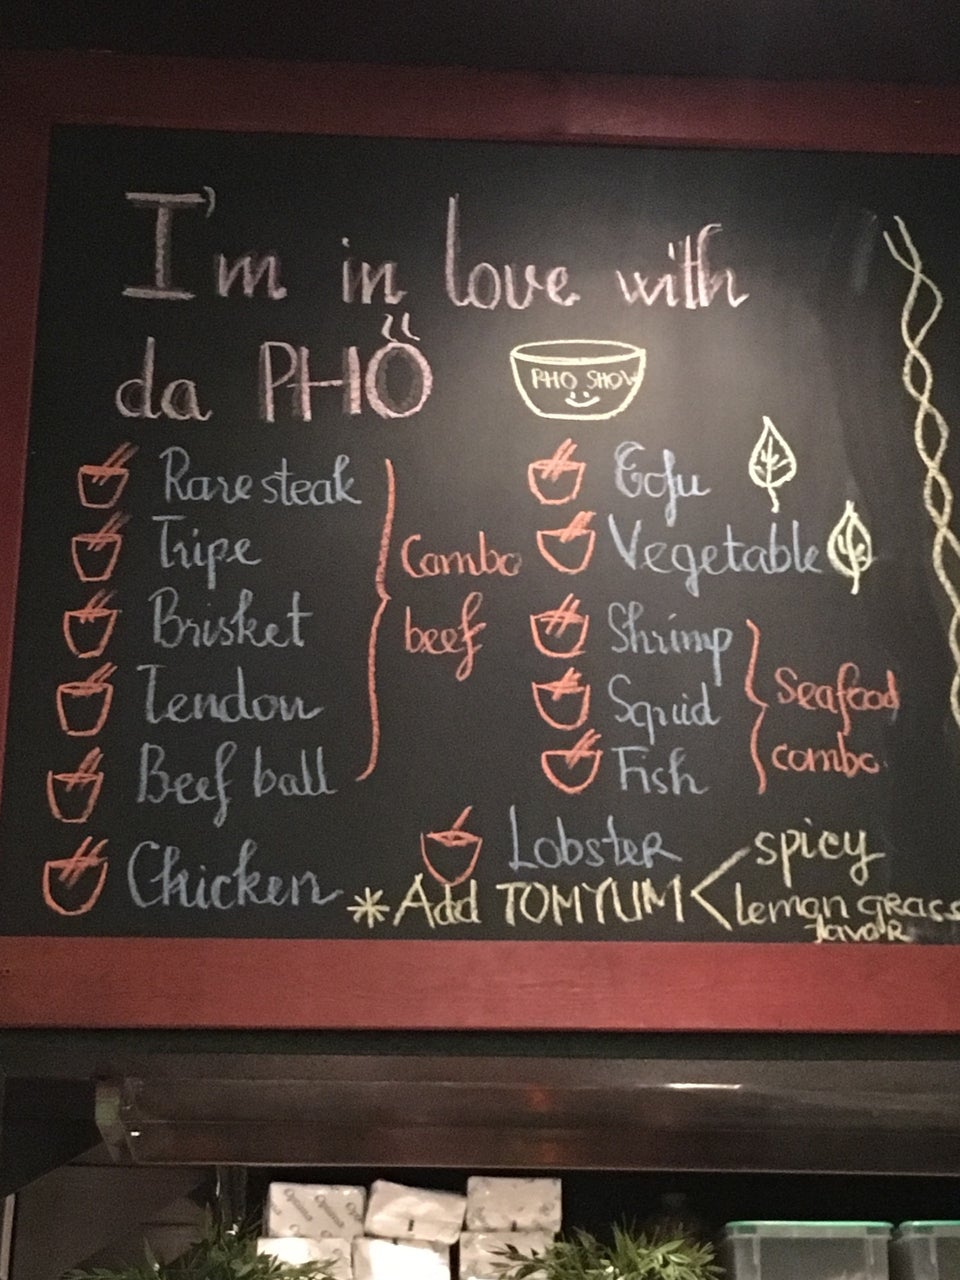 I'm in love with
da PHO
PHO SHOW
Rare steak
Tripe
Brisket
Tendon
Beef ball
Combo
beef
Chicken
Tofu
Vegetable
Shrimp
Squid
Fish
Seafood
combo.
Lobster
*Add TOMYUM < spicy
lemon grass
flavor